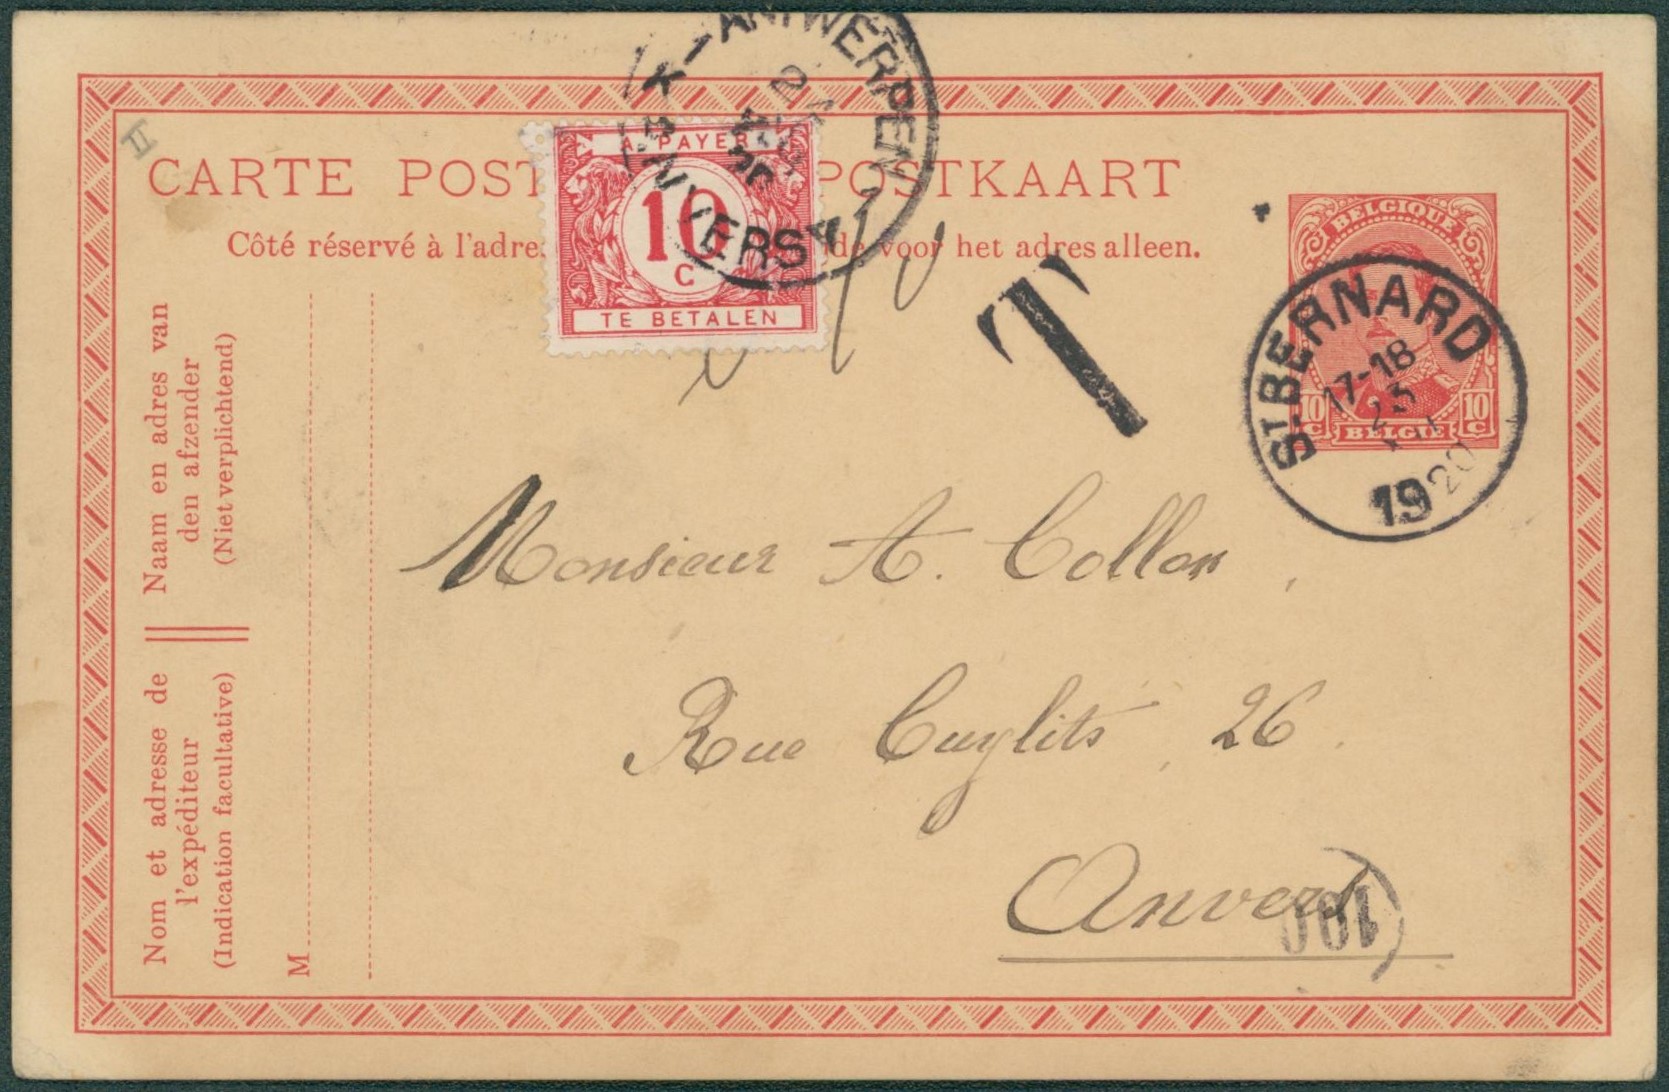 ANTWERPEN
ANVERS
II
CARTE POST POSTKAART
Côté réservé à l'adre de voor het adres alleen.
A PAYER
10
C
TE BETALEN
T
BELGIQUE
10 C
10 C
BELGIË
ST BERNARD
17-18
1920
Naam en adres van
den afzender
(Niet verplichtend)
Nom et adresse de
l'expéditeur
(Indication facultative)
M
Monsieur A. Collon
Rue Cuylits, 26.
Anvers
190